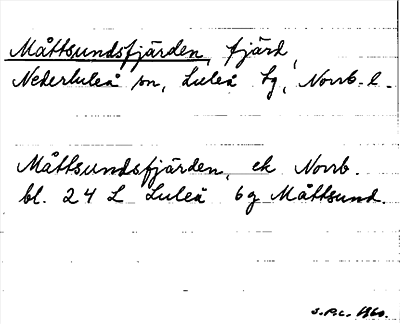 Måttsundsfjärden, fjärd,
Nederluleå sn, Luleå tg, Norrb. l.
Måttsundsfjärden, ek Norrb.
bl. 24 L Luleå 6g Måttsund.